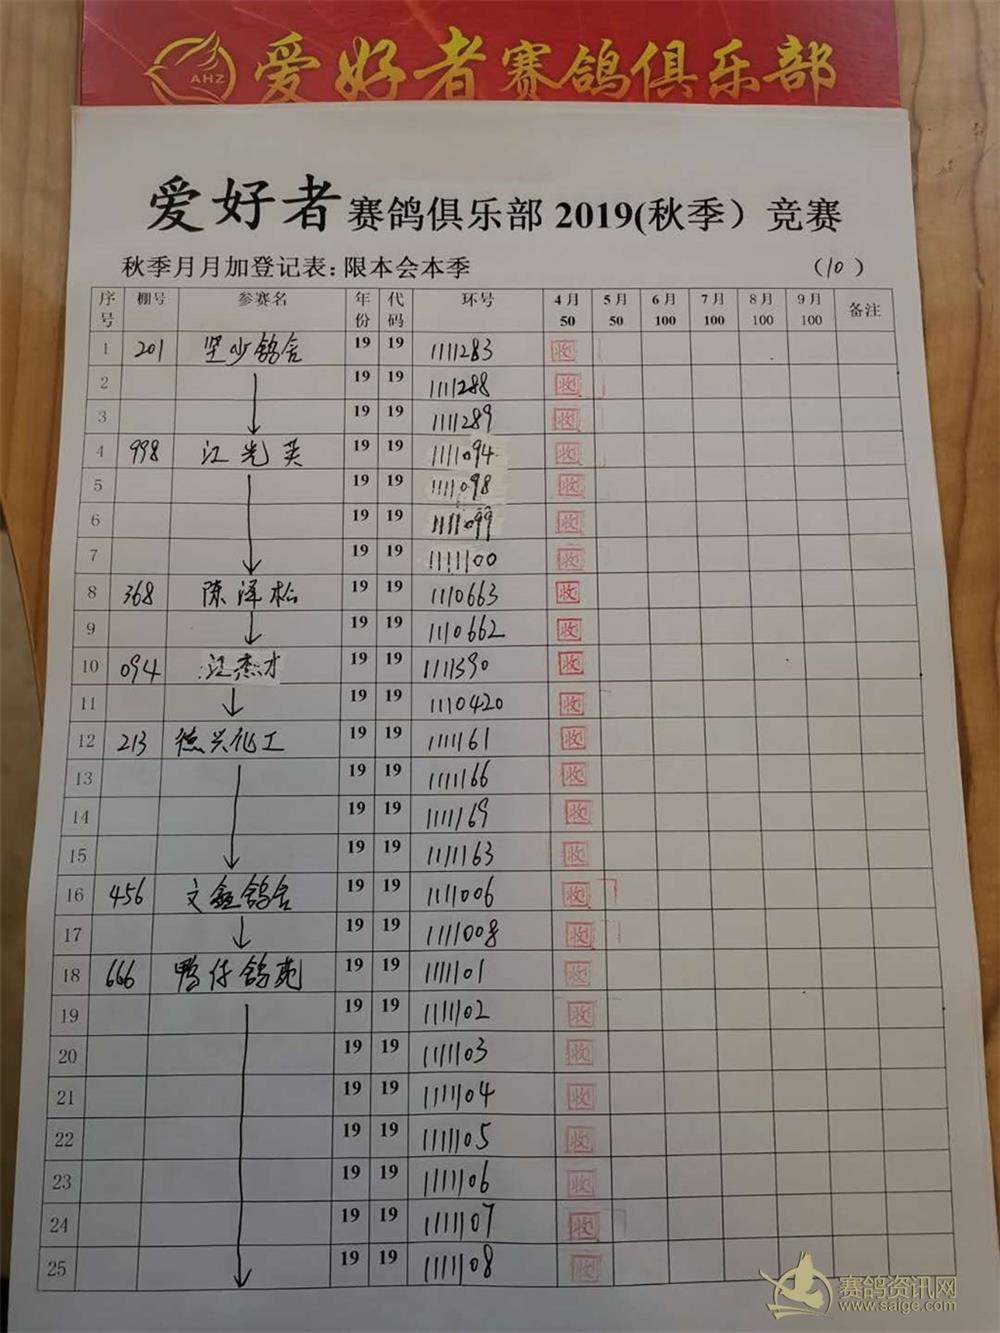 AHZ 爱好者赛鸽俱乐部
爱好者赛鸽俱乐部2019(秋季）竞赛
秋季月月加登记表:限本会本季 （10）
序号 棚号 参赛名 年份 代码 环号 4月50 5月50 6月100 7月100 8月100 9月100 备注
1 201 坚少鸽舍 19 19 1111283 收
2 19 19 1111288 收
3 19 19 1111289 收
4 998 江光英 19 19 1111094 收
5 19 19 1111098 收
6 19 19 1111099 收
7 19 19 1111100 收
8 368 陈泽松 19 19 1110663 收
9 19 19 1110662 收
10 094 江杰才 19 19 1111590 收
11 19 19 1110420 收
12 213 德兴化工 19 19 1111161 收
13 19 19 1111166 收
14 19 19 1111169 收
15 19 19 1111163 收
16 456 文鑫鸽舍 19 19 1111006 收
17 19 19 1111008 收
18 666 鸭仔鸽苑 19 19 1111101 收
19 19 19 1111102 收
20 19 19 1111103 收
21 19 19 1111104 收
22 19 19 1111105 收
23 19 19 1111106 收
24 19 19 1111107 收
25 19 19 1111108 收
赛鸽资讯网
www.saige.com